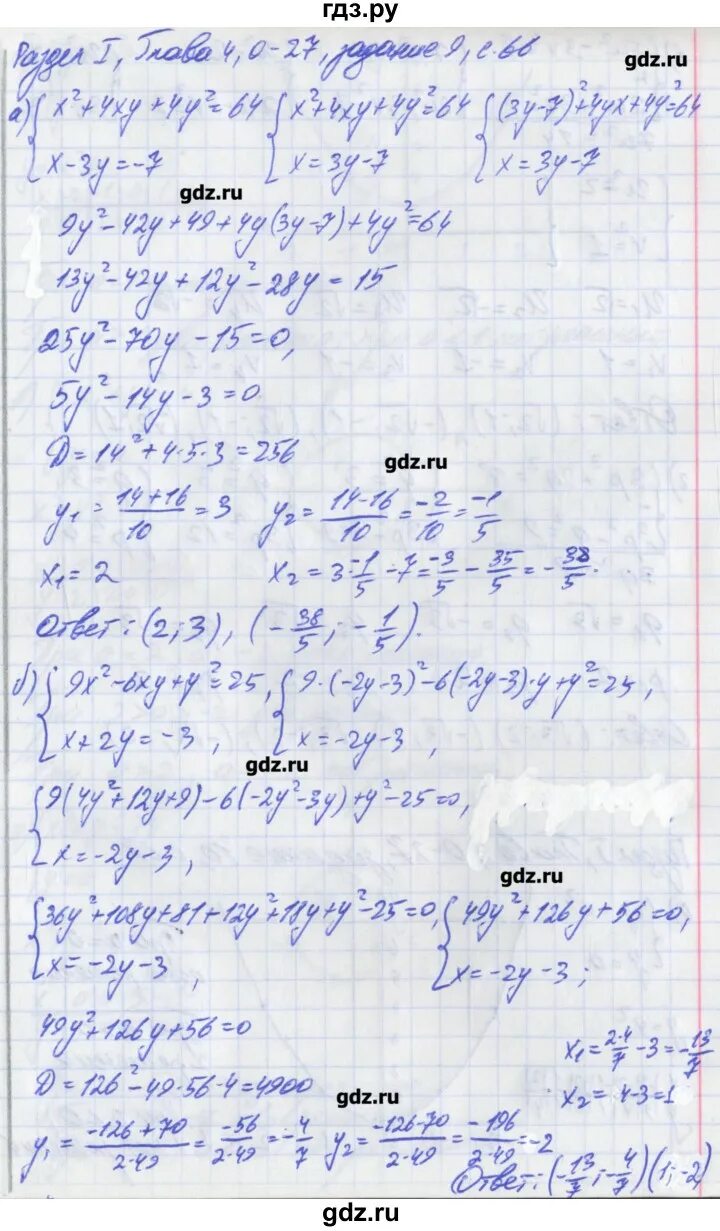 гдз.ру
Раздел I, Глава 4, О-27, задание 9, с.66
gdz.ru
а) { x²+4xy+4y²=64 { x²+4xy+4y²=64 { (3y-7)²+4yx+4y²=64
x-3y=-7 x=3y-7 x=3y-7
gdz.ru
9y²-42y+49+4y(3y-7)+4y²=64
13y²-42y+12y²-28y=15
25y²-70y-15=0,
5y²-14y-3=0
D=14²+4·5·3=256
gdz.ru
y₁=(14+16)/10=3 y₂=(14-16)/10=-2/10=-1/5
x₁=2 x₂=3·-1/5-7=-3/5-35/5=-38/5.
Ответ: (2;3), (-38/5;-1/5).
б) { 9x²-6xy+y²=25, { 9·(-2y-3)²-6(-2y-3)·y+y²=25,
x+2y=-3, x=-2y-3,
gdz.ru
{ 9(4y²+12y+9)-6(-2y²-3y)+y²-25=0,
x=-2y-3,
gdz.ru
{ 36y²+108y+81+12y²+18y+y²-25=0, { 49y²+126y+56=0,
x=-2y-3, x=-2y-3;
49y²+126y+56=0
x₁=2·4/7-3=-13/7
D=126²-49·56·4=4900
gdz.ru
x₂=4-3=1
y₁=(-126+70)/(2·49)=-56/(2·49)=-4/7 y₂=(-126-70)/(2·49)=-196/(2·49)=-2
Ответ: (-13/7;-4/7)(1;-2)
gdz.ru